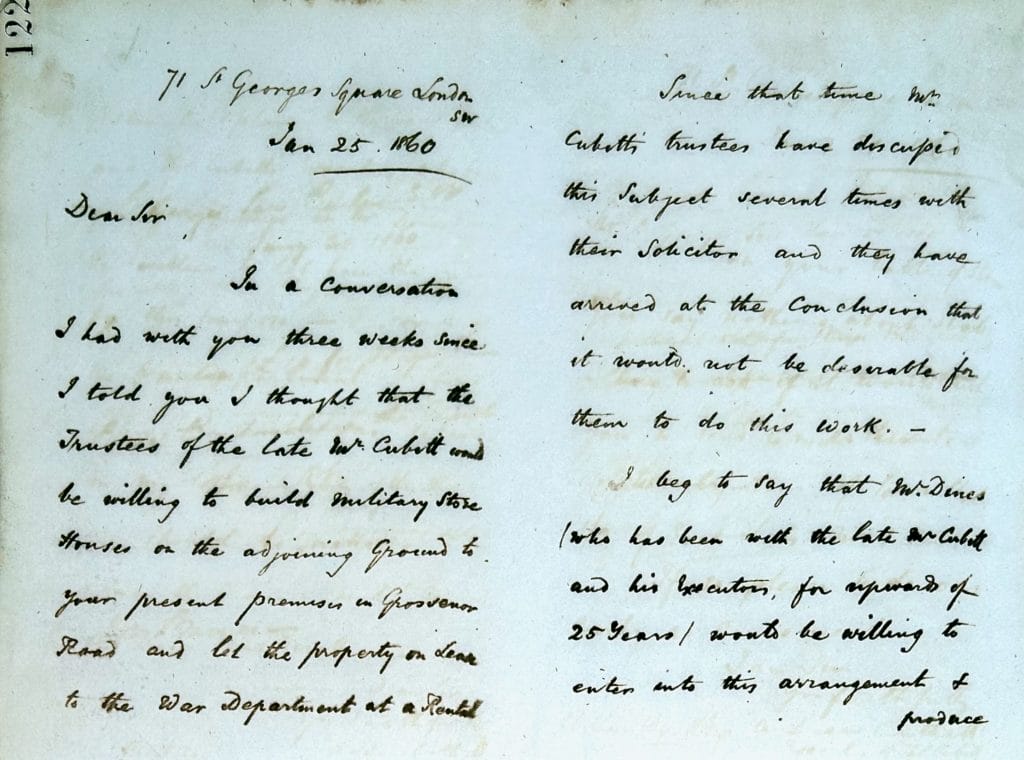 122
71 St Georges Square London
SW
Jan 25. 1860
Dear Sir,
In a Conversation
I had with you three weeks since
I told you I thought that the
Trustees of the late Mr. Cubitt would
be willing to build Military Store
Houses on the adjoining Ground to
your present premises in Grosvenor
Road and let the property on Lease
to the War Department at a Rental
Since that time Mr.
Cubitt's trustees have discussed
this Subject several times with
their Solicitor and they have
arrived at the Conclusion that
it would not be desirable for
them to do this work. —
I beg to say that Mr. Dines
(who has been with the late Mr Cubitt
and his Executors, for upwards of
25 Years) would be willing to
enter into this arrangement &
produce